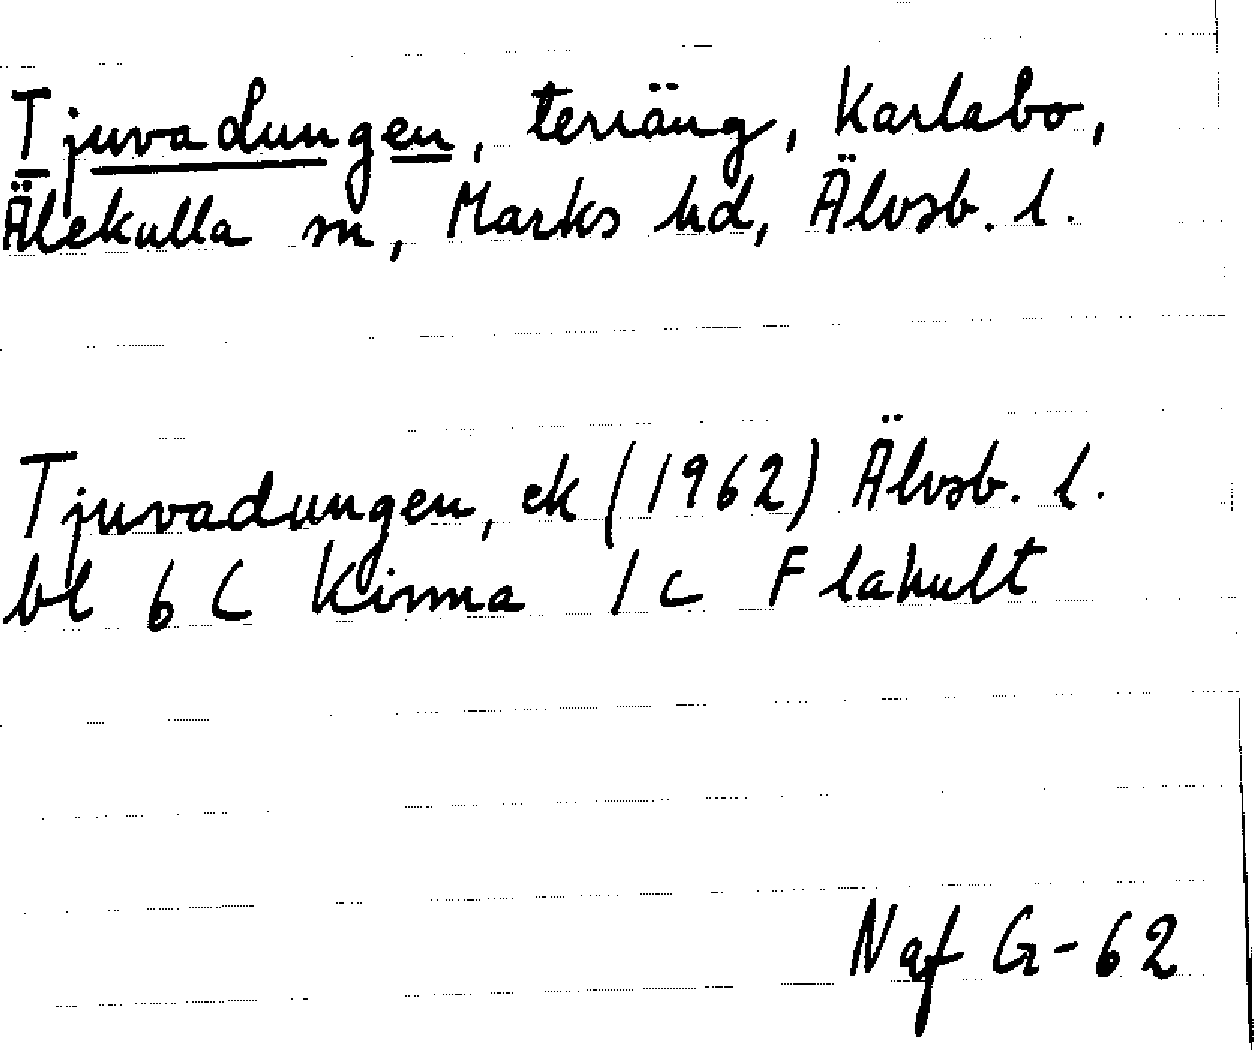 Tjuvadungen, terräng, Karlabo,
Älekulla sn, Marks hd, Älvsb. l.
Tjuvadungen, ek (1962) Älvsb. l.
bl 6 C Kinna 1 c Flahult
Naf G-62